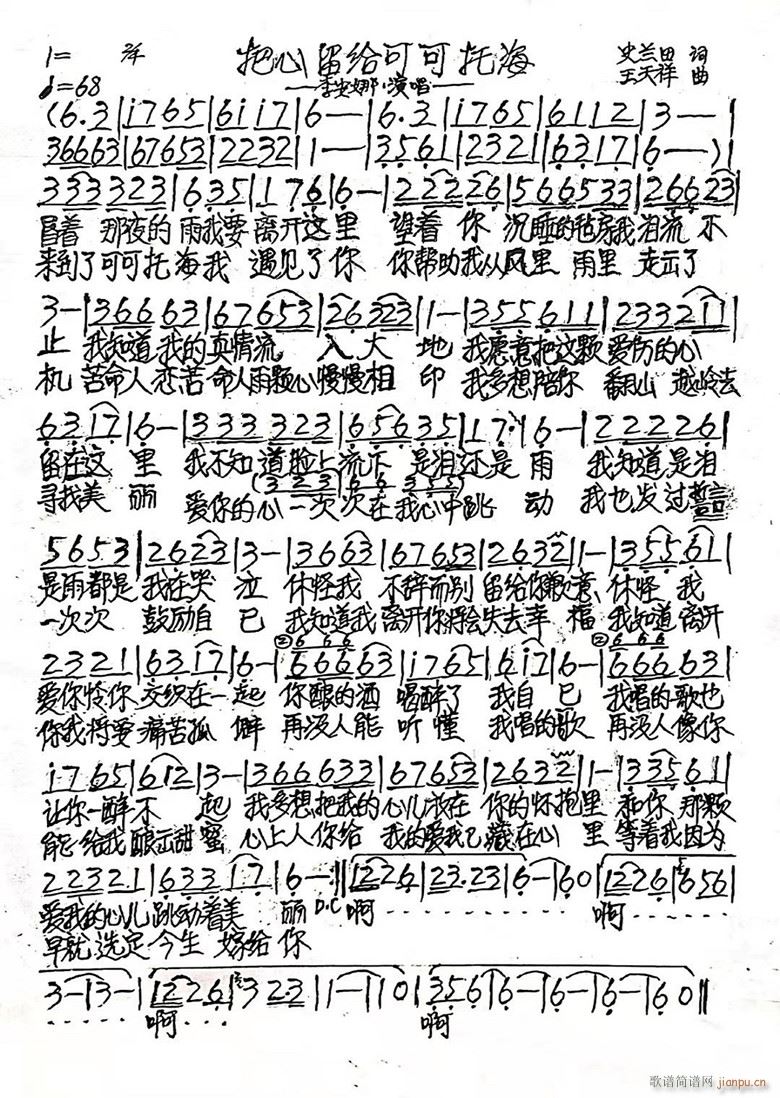 1= 2/4 把心留给可可托海 史兰田 词
♩=68 ——李安娜·演唱—— 王天祥 曲
(6.3|1765|6117|6—|6.3|1765|6112|3——|
36663|67653|2232|1——|3561|2321|6317|6——)|
333323|635|176|6—|22226|566533|26623|
冒着 那夜的雨我要离开这里 望着 你 沉睡的毡房我泪流 不
来到了可可托海我 遇见了你 你帮助我从风里 雨里 走出了
3—|36663|67653|26323|1—|355611|233211|
止 我知道我的真情流 入大 地 我愿意把这颗 爱伤的心
机 苦命人恋苦命人两颗心慢慢相 印 我多想陪你 翻山 越岭去
6317|6—|333323|65635|17·|6—|222226|
留在这 里 我不知道脸上流下 是泪还是雨 我知道是泪
(323 66 355)
寻找美 丽 爱你的心一次次在我心中跳 动 我也发过誓言
5653|2623|3—|3663|67653|2632|1—|35561|
是雨都是 我在哭 泣 休怪我 不辞而别 留给你歉意 休怪 我
一次次 鼓励自 己 我知道我 离开你将会失去幸 福 我知道 离开
②666 ②666
2321|6317|6—|66663|1765|617|6—|66663|
爱你恨你 交织在一起 你酿的酒 喝醉了 我自 己 我唱的歌也
你我将受 痛苦孤 僻 再没人能 听 懂 我唱的歌 再没人像你
1765|612|3—|366633|67653|2632|1—|33561|
让你一醉不 起 我多想把我的心儿放在 你的怀抱里 和你 那颗
能给我酿出甜蜜 心上人你给 我的爱我已藏在心 里 等着我因为
22321|63317|6—:‖1226|23·23|6—|60|1226|656|
爱我的心儿跳动着美 丽 D.C 啊 . . . . . . . . . . 啊 . . . . .
早就选定今生 嫁给 你
3—|3—|1226|323|1—|10|356|6—|6—|6—|60‖
. . . . . . 啊 . . . 啊
歌谱简谱网
jianpu.cn